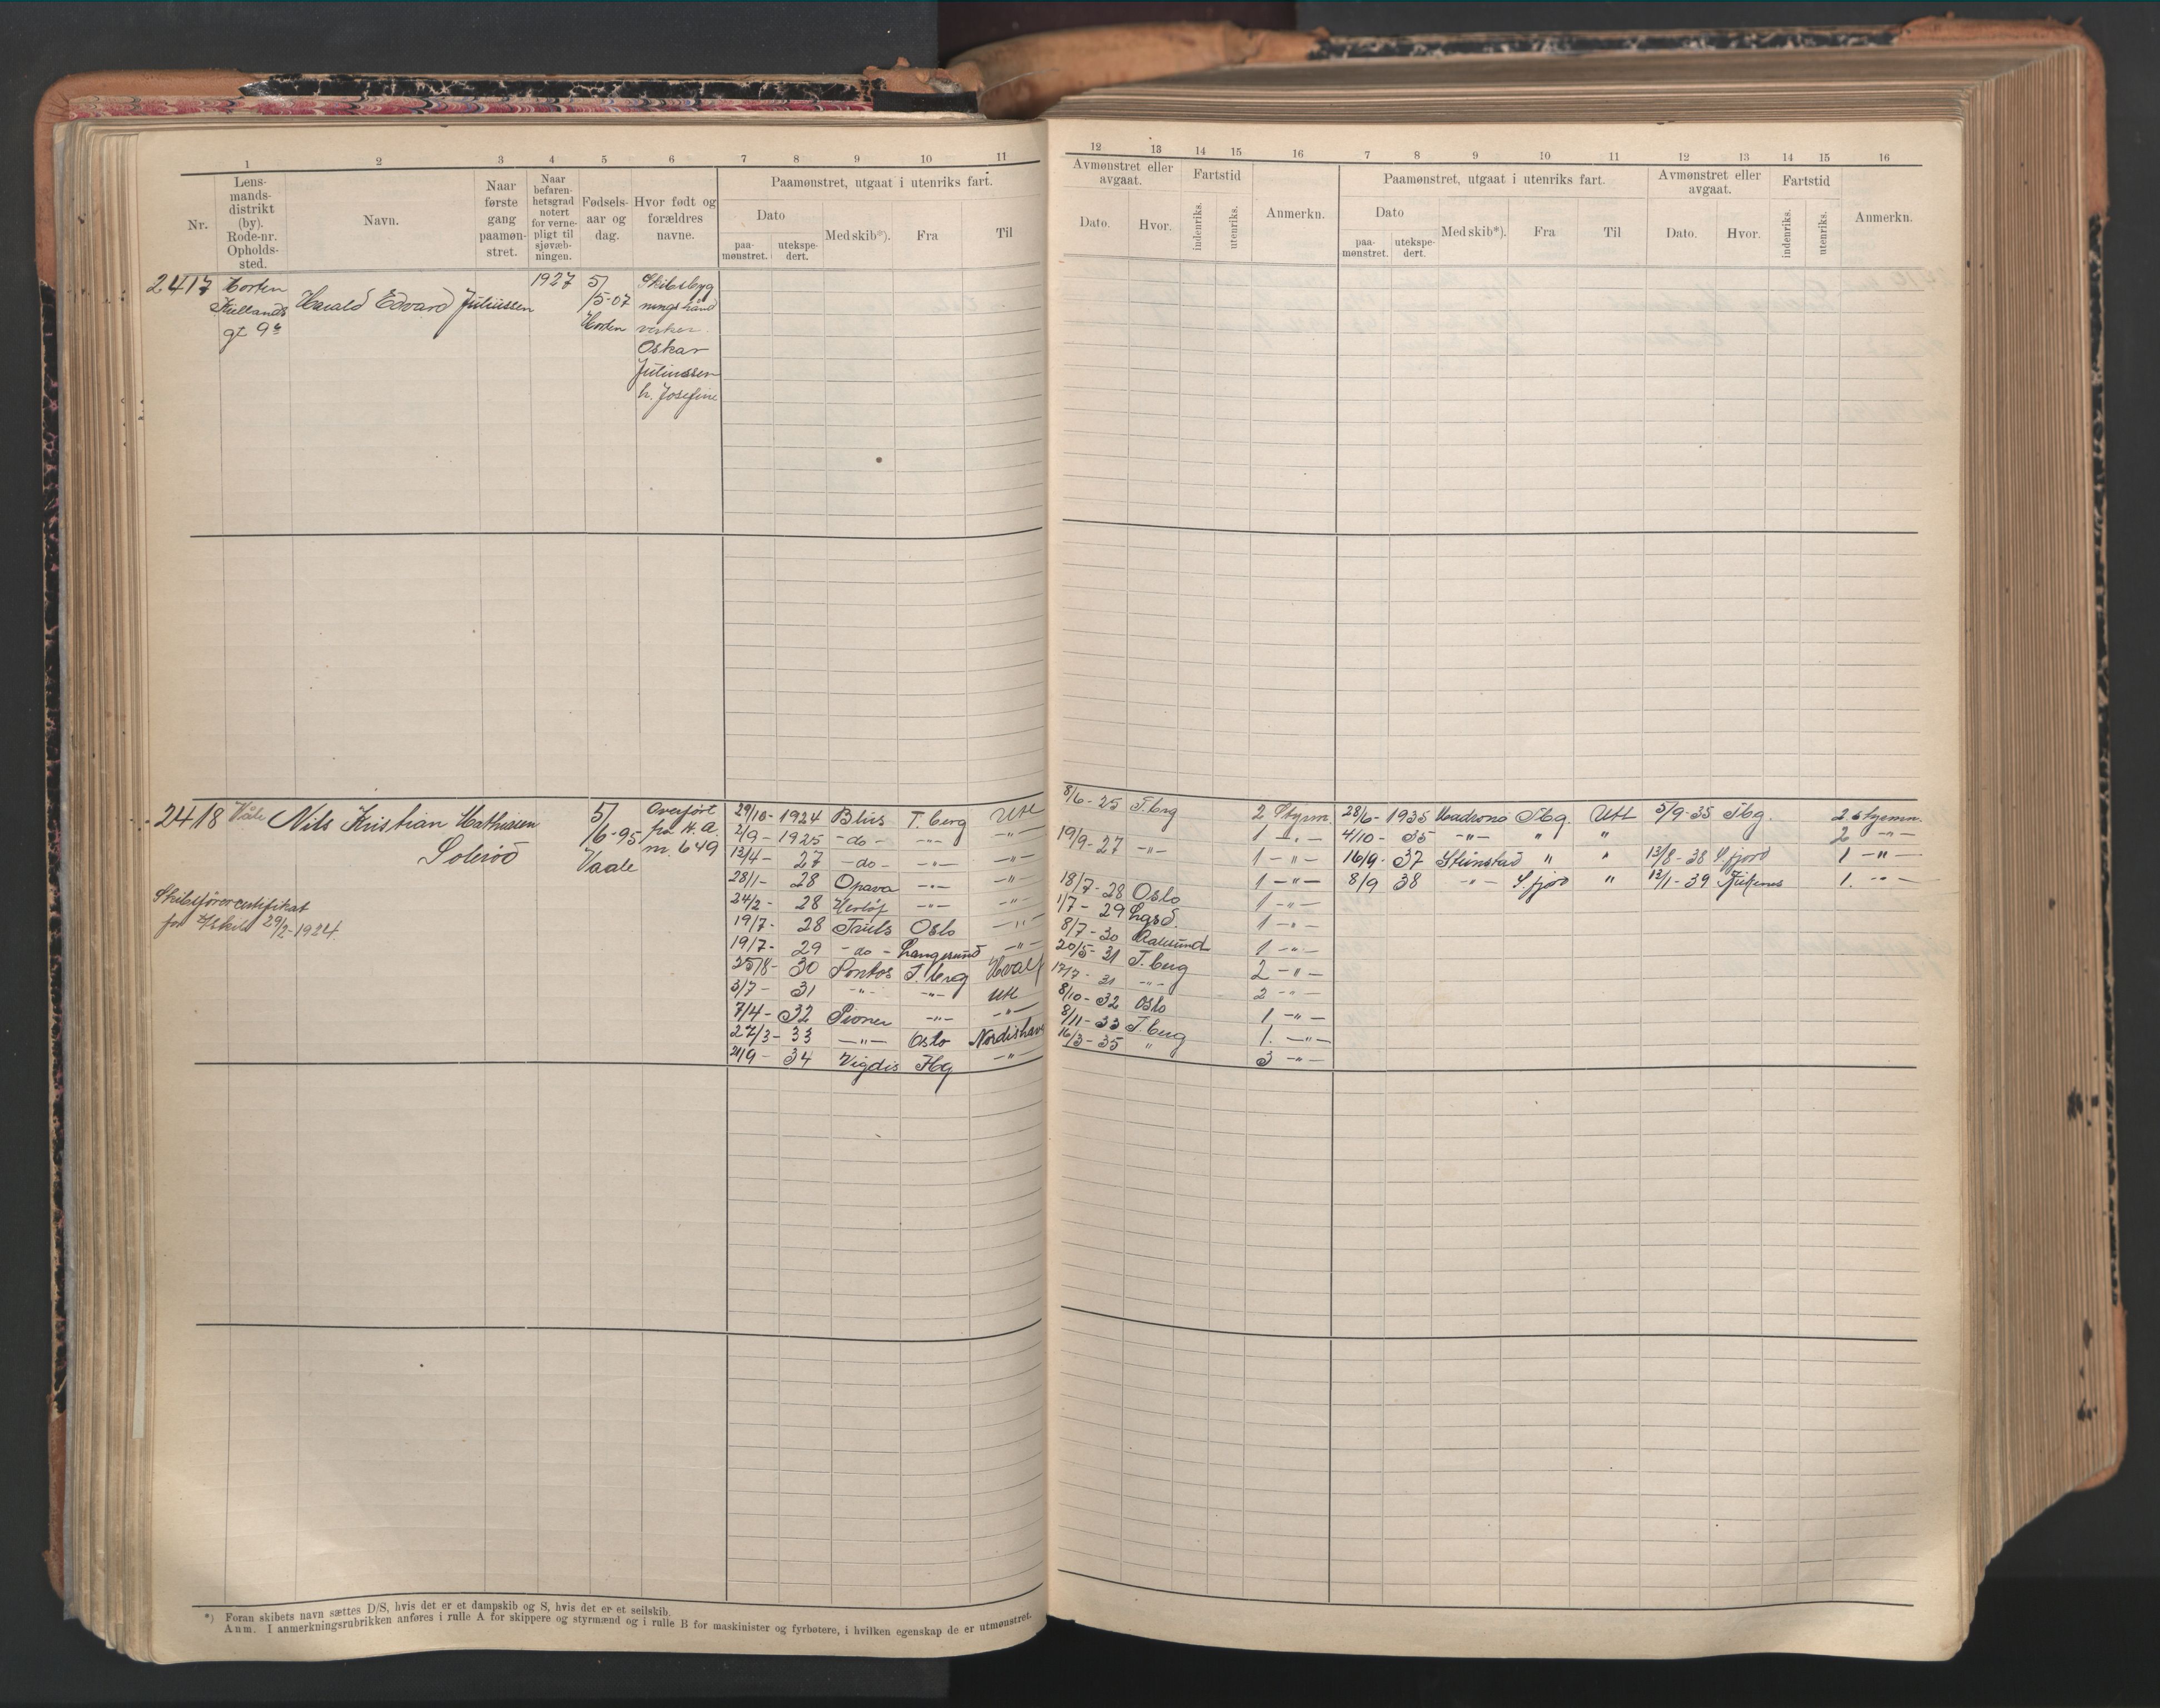 1 2 3 4 5 6 7 8 9 10 11
Nr.
Lens-
mands-
distrikt
(by).
Rode-nr.
Opholds-
sted.
Navn.
Naar
første
gang
paamøn-
stret.
Naar
befaren-
hetsgrad
notert
for verne-
pligt til
sjøvæb-
ningen.
Fødsels-
aar og
dag.
Hvor født og
forældres
navne.
Paamønstret, utgaat i utenriks fart.
Dato
paa-
mønstret.
utekspe-
dert.
Med skib*).
Fra
Til
2417
Horten
gt 9
Harald Edvard Juliussen
1927
5/
/5-07
Horten
Skibsbyg
nings hånd
verker.
Oskar
Juliussen
h. Josefine
2418 Våle Nils Kristian Mathisen
Solerød
5/
/6-95
Vaale
Overført
fra H. A.
nr. 649
Skibsførercertifikat
29/2-1924
29/10- 1924 Blus T. berg Utl
2/9- 1925 -do- -"- -"-
13/4- 27 -do- -"- -"-
28/1- 28 Opava -"- -"-
24/2- 28 -"- -"-
19/7- 28 Truls Oslo -"-
19/7- 29 -do- Langesund -"-
25/8- 30 Pontos T. berg Hvalf
3/7- 31 -"- -"- Utl
7/4- 32 Pioner -"- -"-
27/3- 33 -"- Oslo Nordishav
21/9- 34 Vigdis Tbg -"-
*) Foran skibets navn sættes D/S, hvis det er et dampskib og S, hvis det er et seilskib.
Anm. I anmerkningsrubrikken anføres i rulle A for skippere og styrmænd og i rulle B for maskinister og fyrbøtere, i hvilken egenskap de er utmønstret.
12 13 14 15 16 7 8 9 10 11 12 13 14 15 16
Avmønstret eller
avgaat.
Dato.
Hvor.
Fartstid
indenriks.
utenriks.
Anmerkn.
Paamønstret, utgaat i utenriks fart.
Dato
paa-
mønstret.
utekspe-
dert.
Med skib*).
Fra
Til
Avmønstret eller
avgaat.
Dato.
Hvor.
Fartstid
indenriks.
utenriks.
Anmerkn.
8/6-25 T. berg 2 Styrm
1 -"-
19/9-27 -"- 1 -"-
1 -"-
18/7-28 Oslo 1 -"-
1/7-29 Lgsd. 1 -"-
8/7-30 Aalesund 1 -"-
20/5-31 T. berg 2 -"-
17/7-31 -"- 2 -"-
8/10-32 Oslo 1 -"-
8/11-33 T. berg 1. -"-
16/3-35 " 3 -"-
28/6- 1935 Madrono Tbg. Utl 5/9-35 Tbg. 2 styrmn.
4/10- 35 -"- " " 2 -"-
16/9- 37 Stiinstad " " 13/8-38 S. fjord 1 -"-
8/9 38 -"- S. fjord " 12/1-39 1. -"-